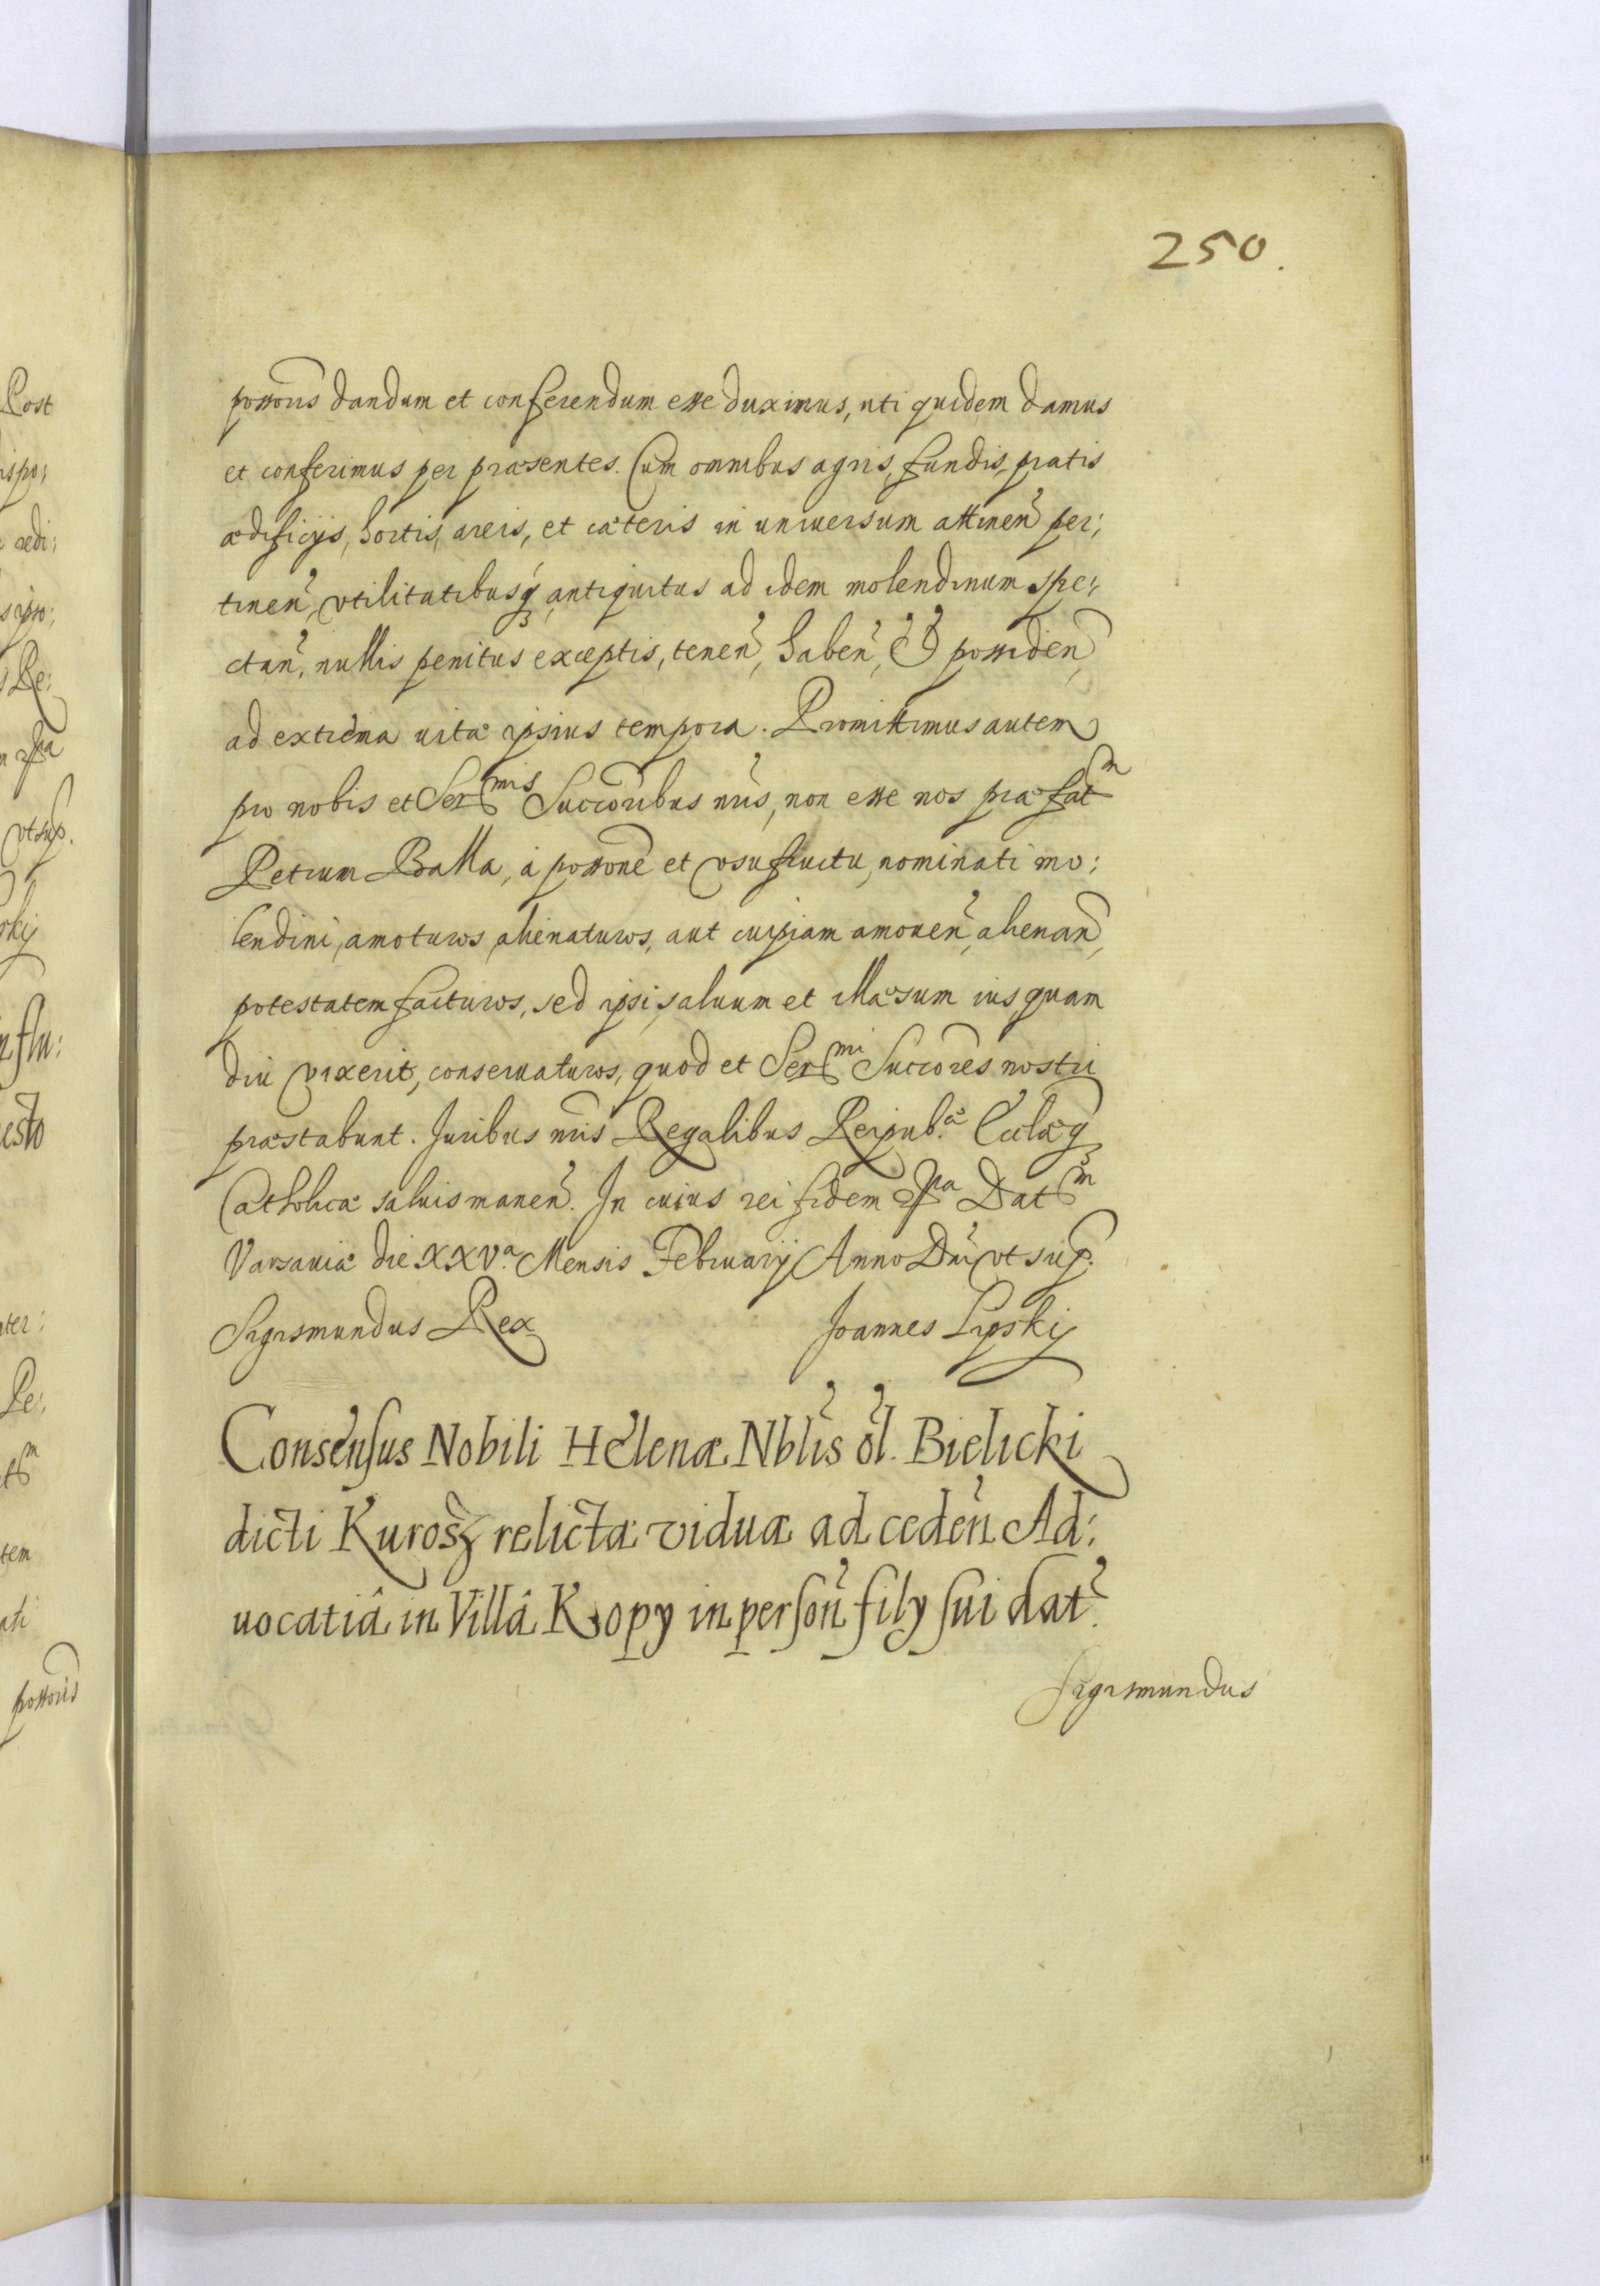 250.
possoris dandum et conferendum esse duximus, uti quidem damus
et conferimus per præsentes. Cum omnibus agris, fundis, pratis
ædificijs, hortis, areis, et cæteris in uniuersum attinen̄ per:
tinen̄, vtilitatibusq₃ antiquitus ad idem molendinum spe:
ctan̄, nullis penitus exceptis, tenen̄, haben̄, et possiden̄
ad extrema uitæ ipsius tempora. Promittimus autem
pro nobis et Ser^mis Succoribus nr̄is, non esse nos præfat^m
Petrum Balla, à possone et vsufructu, nominati mo:
lendini, amoturos, alienaturos, aut cuipiam amouen̄, alienan̄,
potestatem facturos, sed ipsi, saluum et illæsum ius, quam
diu vixerit, conseruaturos, quod et Ser^mi Succores nostri
præstabunt. Juribus nr̄is Regalibus Reipub.æ Ecclæq₃
Catholicæ saluis manen̄. In cuius rei fidem Dat^m
Varsauiæ die XXV.a Mensis Februarij Anno Dn̄i vt sup.
Sigismundus Rex Joannes Lipskij
Consensus Nobili Helenæ Nblis ol. Bielicki
dicti Kurosz relictæ viduæ ad ceden̄ Ad:
uocatiâ in Villâ Kropy in person̄ filÿ sui dat.
Sigismundus